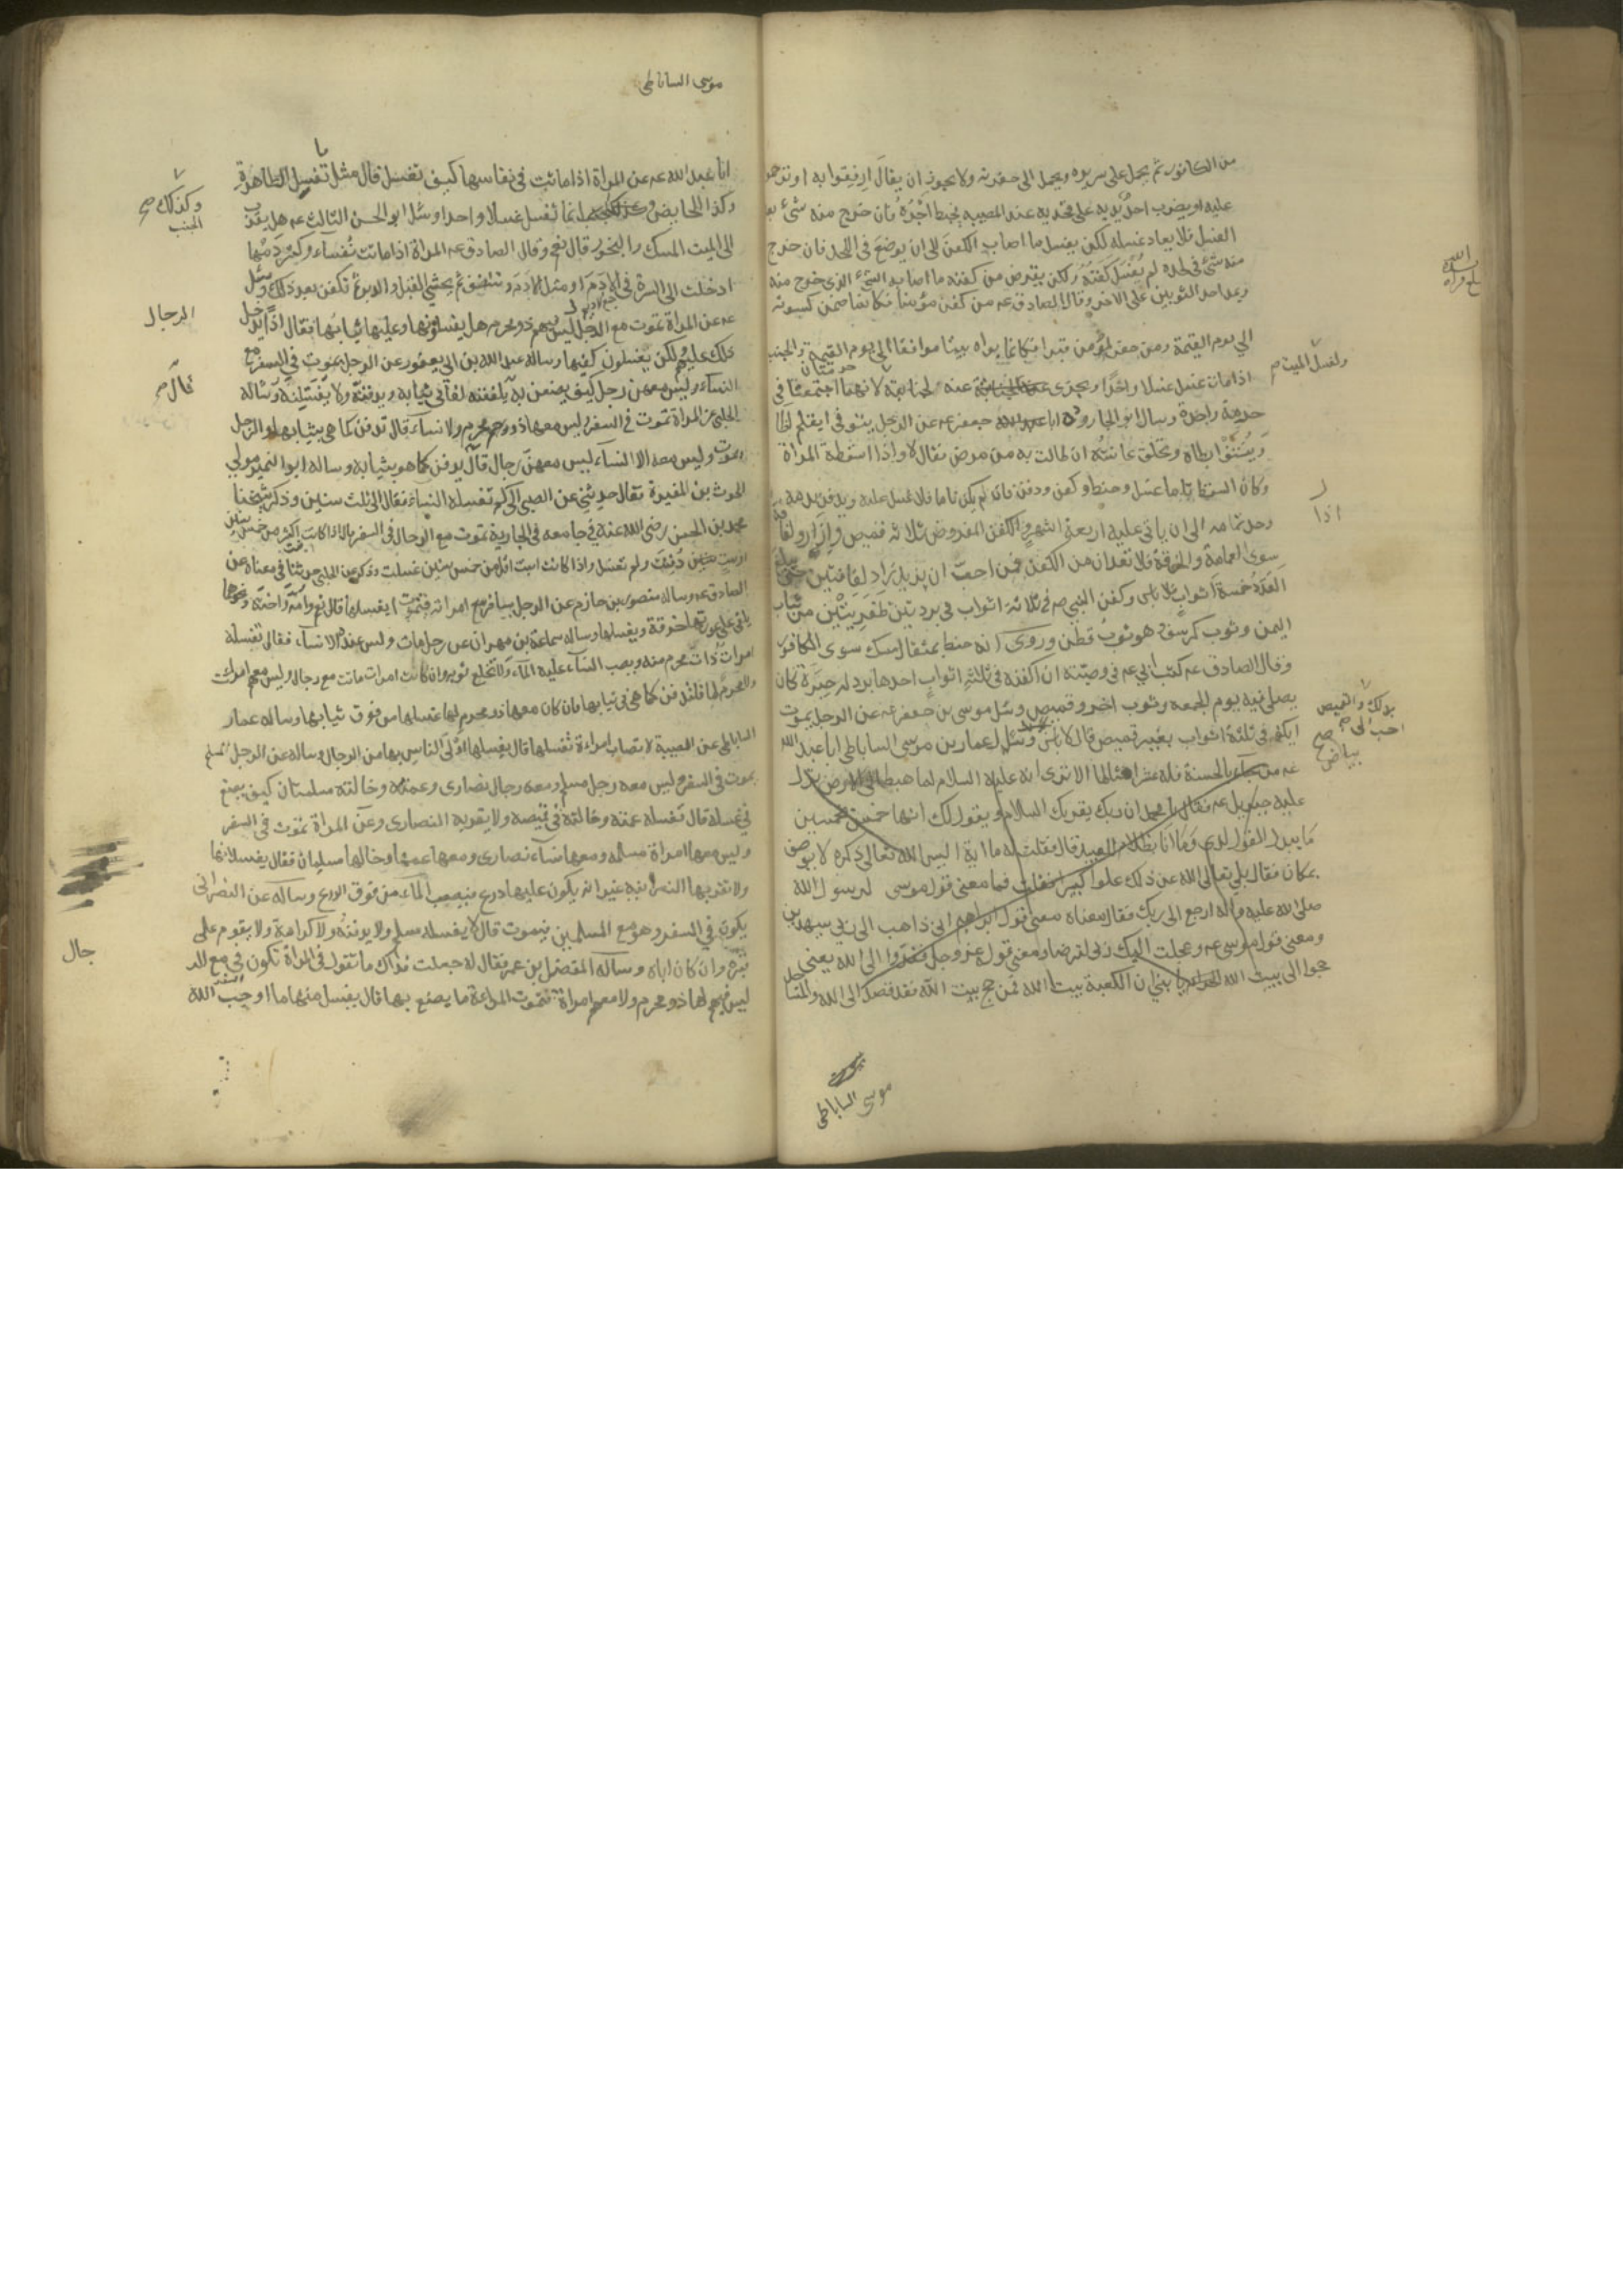 من الكافور ثم يحمل على سريره ويحمل الى حفرته ولا يجوز ان يقال ارفقوا به او ترحموا
عليه او يضرب احد يديه على فخذيه عند المصيبة فيحبط اجره فان خرج منه شئ بعد
الغسل فلا يعاد غسله لكن يغسل ما اصاب الكفن الى ان يوضع في اللحد فان خرج
منه شئ في لحده لم يغسل كفنه ولكن يقرض من كفنه ما اصابه الشئ الذى خرج منه
ويمد احد الثوبين على الاخر وقال الصادق عه من كفن مؤمنا فكانما ضمن كسوته
الى يوم القيمة ومن حفر لمؤمن قبرا فكانما بواه بيتا موافقا الى يوم القيمة والجنب
اذا مات غسل غسلا واحدا يجزى عنه لجنابته لانهما حرمتان اجتمعتا في
ولغسل الميت
حرمة واحدة وسال ابو الجارود ابا جعفر عه عن الرجل يتوفى ايقلم اظا
وينتف ابطاه وتحلق عانته ان طالت به من مرض فقال لا واذا اسقطة المراة
وكان السقط تاما غسل وحنط وكفن ودفن فان لم يكن تاما فلا غسل عليه ويدفن بدمه
اذا
وحد تمامه الى ان ياتى عليه اربعة اشهر والكفن المفروض ثلاثه قميص وازار ولفافة
سوى العمامة والخرقة فلا تعدان من الكفن فمن احب ان يزيد زاد لفافتين حتى يبلغ
العدد خمسة اثواب فلا باس وكفن النبي صه في ثلاثة اثواب في بردتين ظفريتين من ثياب
اليمن وثوب كرسف وهو ثوب قطن وروى انه حنط بمثقال مسك سوى الكافور
وقال الصادق عه كتب ابي عه في وصيته ان اكفنه في ثلثة اثواب احدها برد له حبرة كان
يصلى فيه يوم الجمعه وثوب اخر وقميص وسئل موسى بن جعفر عه عن الرجل يموت
بذلك والقميص
احب الى صح
بياض
ايكفن في ثلثة اثواب بغير قميص قال لا باس وسئل عمار بن موسى الساباطى ابا عبد الله
عه من جاء بالحسنة فله عشر امثالها الا ترى انه عليه السلام لما هبط الى الارض نزل
عليه جبرئيل عه فقال يا محمد ان ربك يقريك السلام ويقول لك انها خمس بخمسين
ما يبدل القول لدى وما انا بظلام للعبيد قال فقلت له يا ابة اليس الله تعالى ذكره لا يوصف
بمكان فقال بلى تعالى الله عن ذلك علوا كبيرا فقلت فما معنى قول موسى لرسول الله
صلى الله عليه واله ارجع الى ربك فقال معناه معنى قول ابراهيم انى ذاهب الى ربى سيهدين
ومعنى قول موسى عه وعجلت اليك رب لترضا ومعنى قوله عز وجل ففروا الى الله يعنى
حجوا الى بيت الله يا بنى ان الكعبة بيت الله فمن حج بيت الله فقد قصد الى الله والمساجد
موسى الساباطى
موسى الساباطى
ابا عبد الله عه عن المراة اذا ماتت في نفاسها كيف تغسل قال مثل ما تغسل الطاهرة
وكذلك
الجنب
وكذا الحايض انما تغسل غسلا واحدا وسئل ابو الحسن الثالث عه هل يقرب
الى الميت المسك والبخور قال نعم وقال الصادق عه المراة اذا ماتت نفساء وكثر دمها
ادخلت الى السرة في الادم او مثل الادم وتنظف ثم يحشى القبل والدبر ثم تكفن بعد ذلك وسئل
عه عن المراة تموت مع الرجال ليس فيهم ذو محرم هل يغسلونها وعليها ثيابها فقال اذا يدخل
الرجال
ذلك عليهم ولكن يغسلون كفيها وساله عبد الله بن ابى يعفور عن الرجل يموت في السفر مع
النساء وليس معهن رجل كيف يصنعن به قال يلففنه لفا في ثيابه ويدفنه ولا يغسلنه وساله
قال
الحلبى عن المراة تموت في السفر وليس معها ذو محرم ولا نساء قال تدفن كما هى بثيابها والرجل
يموت وليس معه الا النساء ليس معهن رجال قال يدفن كما هو بثيابه وساله ابو النمير مولى
الحرث بن المغيرة فقال حدثنى عن الصبى الى كم تغسله النساء فقال الى ثلث سنين وذكر شيخنا
محمد بن الحسن رضى الله عنه في جامعه في الجارية تموت مع الرجال في السفر قال اذا كانت اكثر من خمس سنين
او ست دفنت ولم تغسل واذا كانت ابنت اقل من خمس سنين غسلت وذكر عن الحلبى حديثا في معناه عن
الصادق عه وساله منصور بن حازم عن الرجل يسافر مع امراته فتموت ايغسلها قال نعم وامه واخته ونحوها
يلقى على عورتها خرقة ويغسلها وساله سماعة بن مهران عن رجل مات وليس عنده الا نساء فقال تغسله
امرات ذات محرم منه ويصب النساء عليه الماء ولا تخلع ثوبه وان كانت امرات ماتت مع رجال وليس معهم امرات
ولا محرم لها فلتدفن كما هى في ثيابها فان كان معها ذو محرم لها غسلها من فوق ثيابها وساله عمار
الساباطى عن الصبية لا تصاب امراءة تغسلها قال يغسلها اولى الناس بها من الرجال وساله عن الرجل المسلم
يموت في السفر وليس معه رجل مسلم ومعه رجال نصارى وعمته وخالته مسلمتان كيف يصنع
في غسله قال تغسله عمته وخالته في قميصه ولا يقربه النصارى وعن المراة تموت في السفر
وليس معها امراة مسلمه ومعها نساء نصارى ومعها عمها وخالها مسلمان فقال يغسلانها
ولا تقربها النصرانية غير انه يكون عليها درع فيصب الماء من فوق الدرع وساله عن النصرانى
يكون في السفر وهو مع المسلمين فيموت قال لا يغسله مسلم ولا يدفنه ولا كرامة ولا يقوم على
قبره وان كان اباه وساله المفضل بن عمر فقال له جعلت فداك ما تقول في المراة تكون في السفر مع الر
جال
ليس فيهم لها ذو محرم ولا معهم امراة فتموت المراءة ما يصنع بها قال يغسل منها ما اوجب الله